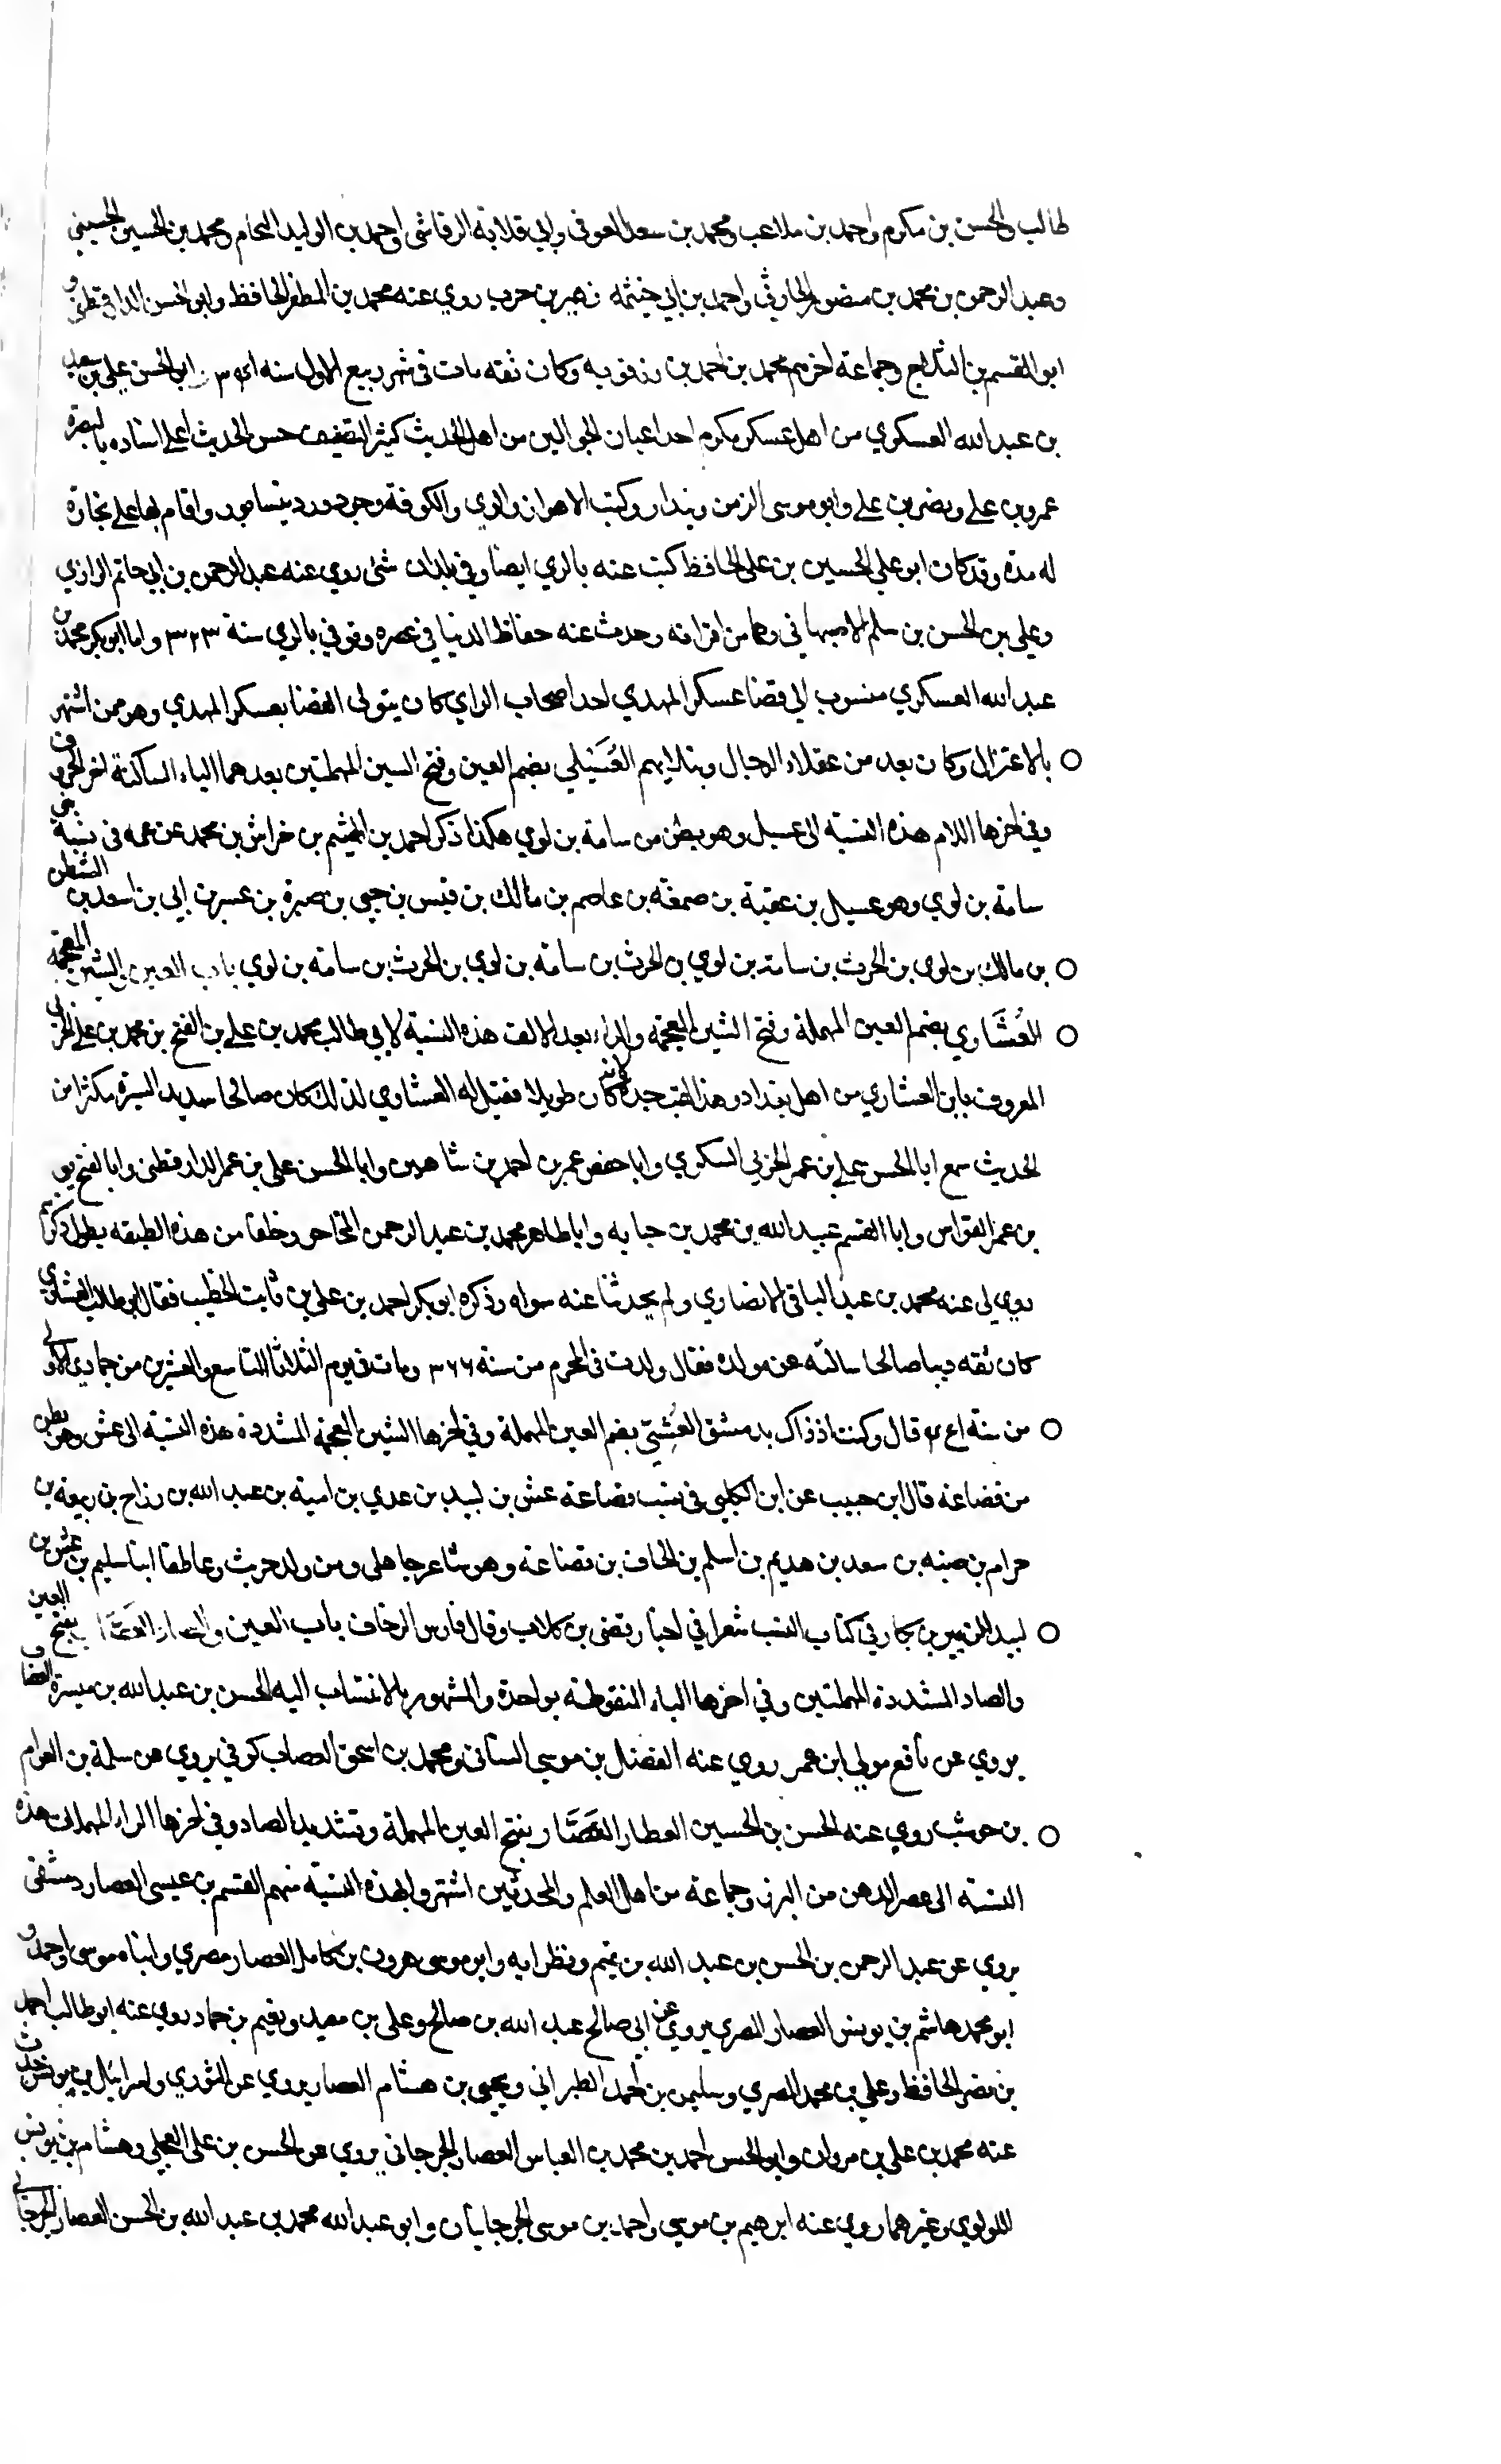 طالب والحسن بن مكرم واحمد بن ملاعب ومحمد بن سعد العوفى وابي قلابة الرقاشى واحمد بن الوليد الفحام ومحمد بن الحسين الحسيني
وعبد الرحمن بن محمد بن منصور الحارثي واحمد بن ابي خيثمه زهير بن حرب روي عنه محمد بن المظفر الحافظ وابو الحسن الدارقطنى و
ابو القسم بن الثلاج وجماعة اخرهم محمد بن احمد بن رزقويه وكان ثقه مات فى شهر ربيع الاول سنه ابو الحسن علي بن سعيد
بن عبد الله العسكري من اهل عسكر مكرم احد اعيان الجوالين من اهل الحديث كثير التصنيف حسن الحديث اعلى اسناده بالبصرة
عمرو بن علي ونصر بن علي وابو موسى الزمن وبندار وكتب الاهواز والري والكوفة وورد نيسابور واقام بها على تجارة
له مدة وقد كان ابو علي الحسين بن على الحافظ كتب عنه بالري ايضا وفي بلدان شتى روي عنه عبد الرحمن بن ابي حاتم الرازي
وعلي بن الحسن بن سلم الاصبهاني وهما من اقرانه وحدث عنه حفاظ الدنيا في عصره وتوفي بالري سنة ٣٢٣ واما ابو بكر محمد بن
عبد الله العسكري منسوب الى قضا عسكر المهدي احد اصحاب الراي كان يتولى القضا بعسكر المهدي وهو ممن اشتهر
بالاعتزال وكان يعد من عقلاء الرجال العُسَيلي بضم العين وفتح السين المهملتين بعدهما الياء الساكنة اخر الحروف
وفي اخرها اللام هذه النسبة الى عسيل وهو بطن من سامة بن لوي هكذا ذكر احمد بن الهيثم بن خراش بن محمد عن عمه فى نسب بني
سامة بن لوي وهو عسيل بن عقبة بن صمعه بن عاصم بن مالك بن قيس بن حيي بن صبرة بن ابي بن اسعد بن الشطن
بن مالك بن لوي بن الحرث بن سامة بن لوي بن الحرث بن سامه بن لوي باب العين والشين المعجمة
العُشَاري بضم العين المهملة وفتح الشين المعجمة والراء بعد الالف هذه النسبة لابي طالب محمد بن علي بن الفتح بن محمد بن علي الحربي
المعروف بابن العشاري من اهل بغداد وهذا لقب جده لانه كان طويلا فقيل له العشاري لذلك كان صالحا سديد السيرة مكثرا من
الحديث سمع ابا الحسن علي بن عمر الحربي السكري وابا حفص عمر بن احمد بن شاهين وابا الحسن علي بن عمر الدارقطنى وابا الفتح يو
بن عمر القواس وابا القسم عبيد الله بن محمد بن حبابه وابا طاهر محمد بن عبد الرحمن المخلص وخلقا من هذه الطبقه يطول ذكرهم
روي لى عنه محمد بن عبد الباقى الانصاري ولم يحدثنا عنه سواه وذكره ابو بكر احمد بن علي بن ثابت الخطيب فقال ابو طالب العشاري
كان ثقه دينا صالحا سالته عن مولده فقال ولدت فى المحرم من سنه ٣٦٦ ومات فى يوم الثلاثا التاسع والعشرين من جمادي الاولي
من سنة قال وكنت اذ ذاك بدمشق العُشّي بضم العين المهملة وفي اخرها الشين المعجمة المشددة هذه النسبة الى عش وهو بطن
من قضاعه قال ابن حبيب عن ابن الكلبي فى نسب قضاعة عش بن لبيد بن عدي بن امية بن عبد الله بن رزاح بن ربيعه بن
حرام بن ضنه بن سعد بن هديم بن اسلم بن الحاف بن قضاعة وهو شاعر جاهلى ومن ولد حريث ابنا سليم بن عش بن
لبيد الزبير بن بكار في كتاب النسب شعرا في اخبار قصى بن كلاب وقال فارس الرحاف باب العين والصاد العَصَّاب بفتح العين
والصاد المشددة المهملتين وفي اخرها الباء المنقوطه بواحدة والمشهور بالانتساب اليه الحسن بن عبد الله بن ميسرة العصاب
يروي عن نافع مولي ابن عمر روي عنه الفضل بن موسى السينانى ومحمد بن اسحق العصاب كوفي يروي عن سلمة بن العوام
بن حوشب روي عنه الحسن بن الحسين العطار العَصَّار بفتح العين المهملة وتشديد الصاد وفي اخرها الراء المهملة هذه
النسبة الى عصر الدهن من البزر وجماعة من اهل العلم والمحدثين اشتهروا بهذه النسبة منهم القسم بن عيسى العصار دمشقي
يروي عن عبد الرحمن بن الحسن بن عبد الله بن تميم ونظرايه وابو موسى هرون بن كامل العصار مصري وابناه موسى واحمد و
ابو محمد هاشم بن يونس العصار المصري يروي عن ابي صالح عبد الله بن صالح وعلي بن معبد ونعيم بن حماد روي عنه ابو طالب احمد
بن نصر الحافظ وعلي بن محمد المصري وسليمن بن احمد الطبراني ويحيى بن هشام العصار يروي عن الثوري واسرائيل بن يونس حدث
عنه محمد بن علي بن مروان وابو الحسن احمد بن محمد بن العباس العصار الجرجاني يروي عن الحسن بن علي العجلي وهشام بن يونس
اللولوي وغيرهما روي عنه ابرهيم بن موسي واحمد بن موسى الجرجانيان وابو عبد الله محمد بن عبد الله بن الحسن العصار الجرجاني